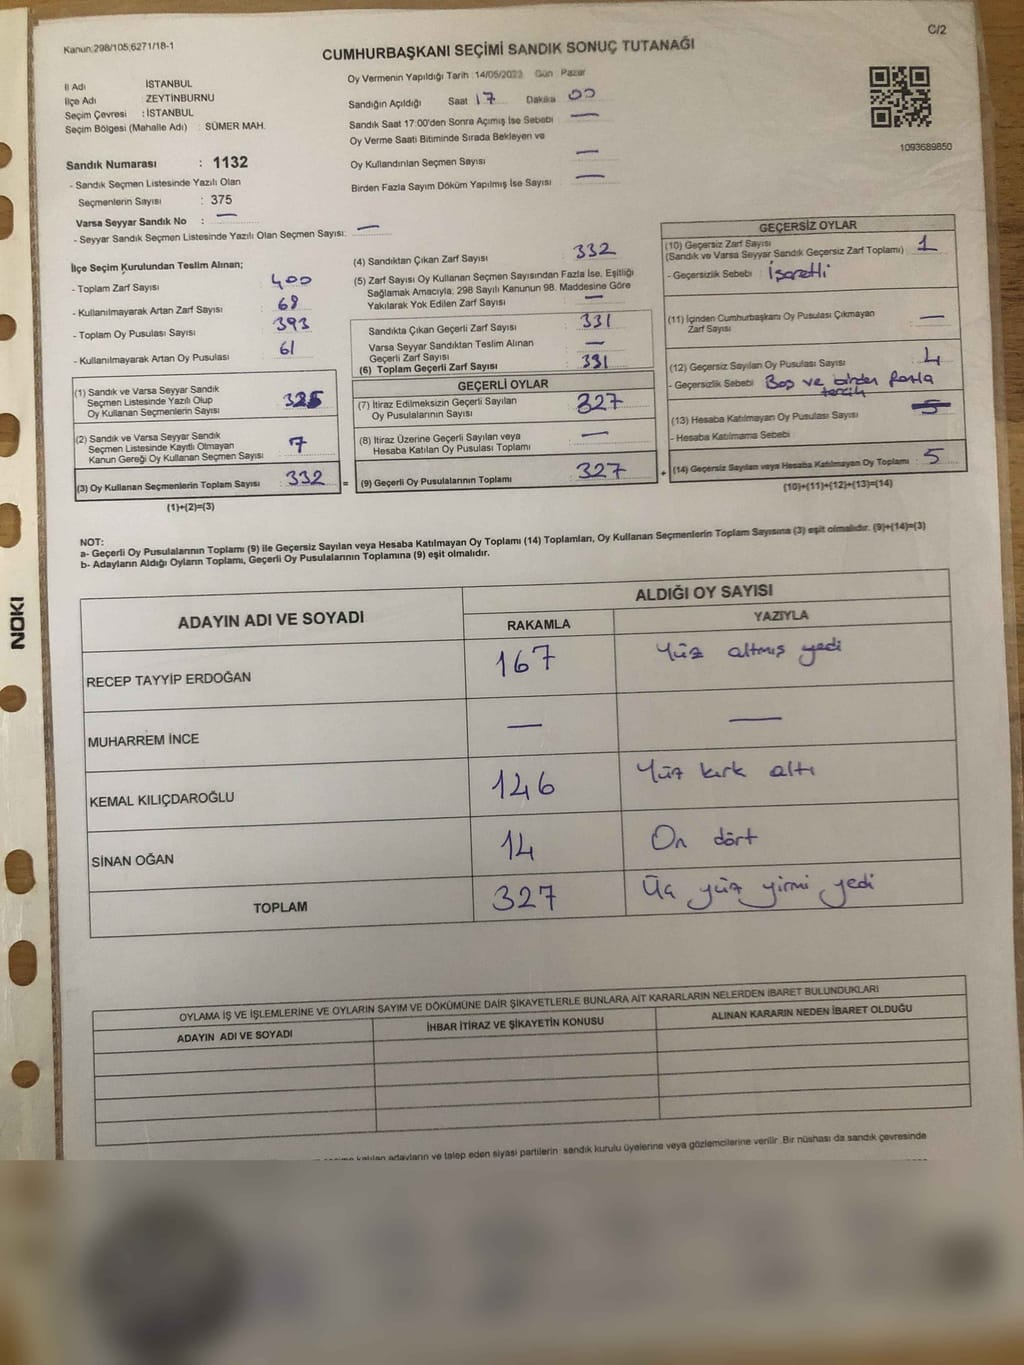 Kanun:298/105;6271/18-1
C/2
CUMHURBAŞKANI SEÇİMİ SANDIK SONUÇ TUTANAĞI
İl Adı İSTANBUL
İlçe Adı : ZEYTİNBURNU
Seçim Çevresi : İSTANBUL
Seçim Bölgesi (Mahalle Adı) : SÜMER MAH.
Sandık Numarası : 1132
- Sandık Seçmen Listesinde Yazılı Olan
Seçmenlerin Sayısı : 375
Varsa Seyyar Sandık No : —
- Seyyar Sandık Seçmen Listesinde Yazılı Olan Seçmen Sayısı: —
Oy Vermenin Yapıldığı Tarih : 14/05/2023 Gün Pazar
Sandığın Açıldığı Saat 17 Dakika 00
Sandık Saat 17:00'den Sonra Açımış İse Sebebi : —
Oy Verme Saati Bitiminde Sırada Bekleyen ve
Oy Kullandırılan Seçmen Sayısı : —
Birden Fazla Sayım Döküm Yapılmış İse Sayısı : —
1093689850
İlçe Seçim Kurulundan Teslim Alınan;
- Toplam Zarf Sayısı : 400
- Kullanılmayarak Artan Zarf Sayısı : 68
- Toplam Oy Pusulası Sayısı : 393
- Kullanılmayarak Artan Oy Pusulası : 61
(1) Sandık ve Varsa Seyyar Sandık
Seçmen Listesinde Yazılı Olup
Oy Kullanan Seçmenlerin Sayısı : 325
(2) Sandık ve Varsa Seyyar Sandık
Seçmen Listesinde Kayıtlı Olmayan
Kanun Gereği Oy Kullanan Seçmen Sayısı : 7
(3) Oy Kullanan Seçmenlerin Toplam Sayısı : 332
(1)+(2)=(3)
=
(4) Sandıktan Çıkan Zarf Sayısı : 332
(5) Zarf Sayısı Oy Kullanan Seçmen Sayısından Fazla İse, Eşitliği
Sağlamak Amacıyla, 298 Sayılı Kanunun 98. Maddesine Göre
Yakılarak Yok Edilen Zarf Sayısı : —
Sandıkta Çıkan Geçerli Zarf Sayısı : 331
Varsa Seyyar Sandıktan Teslim Alınan
Geçerli Zarf Sayısı : —
(6) Toplam Geçerli Zarf Sayısı : 331
GEÇERLİ OYLAR
(7) İtiraz Edilmeksizin Geçerli Sayılan
Oy Pusulalarının Sayısı : 327
(8) İtiraz Üzerine Geçerli Sayılan veya
Hesaba Katılan Oy Pusulası Toplamı : —
(9) Geçerli Oy Pusulalarının Toplamı : 327
+
GEÇERSİZ OYLAR
(10) Geçersiz Zarf Sayısı
(Sandık ve Varsa Seyyar Sandık Geçersiz Zarf Toplamı) : 1
- Geçersizlik Sebebi : İşaretli
(11) İçinden Cumhurbaşkanı Oy Pusulası Çıkmayan
Zarf Sayısı : —
(12) Geçersiz Sayılan Oy Pusulası Sayısı : 4
- Geçersizlik Sebebi : Boş ve birden fazla
tercih
(13) Hesaba Katılmayan Oy Pusulası Sayısı :
- Hesaba Katılmama Sebebi :
(14) Geçersiz Sayılan veya Hesaba Katılmayan Oy Toplamı : 5
(10)+(11)+(12)+(13)=(14)
NOT:
a- Geçerli Oy Pusulalarının Toplamı (9) ile Geçersiz Sayılan veya Hesaba Katılmayan Oy Toplamı (14) Toplamları, Oy Kullanan Seçmenlerin Toplam Sayısına (3) eşit olmalıdır. (9)+(14)=(3)
b- Adayların Aldığı Oyların Toplamı, Geçerli Oy Pusulalarının Toplamına (9) eşit olmalıdır.
ADAYIN ADI VE SOYADI
ALDIĞI OY SAYISI
RAKAMLA YAZIYLA
RECEP TAYYİP ERDOĞAN 167 Yüz altmış yedi
MUHARREM İNCE — —
KEMAL KILIÇDAROĞLU 146 Yüz kırk altı
SİNAN OĞAN 14 On dört
TOPLAM 327 Üç yüz yirmi yedi
OYLAMA İŞ VE İŞLEMLERİNE VE OYLARIN SAYIM VE DÖKÜMÜNE DAİR ŞİKAYETLERLE BUNLARA AİT KARARLARIN NELERDEN İBARET BULUNDUKLARI
ADAYIN ADI VE SOYADI İHBAR İTİRAZ VE ŞİKAYETİN KONUSU ALINAN KARARIN NEDEN İBARET OLDUĞU
katılan adayların ve talep eden siyasi partilerin sandık kurulu üyelerine veya gözlemcilerine verilir. Bir nüshası da sandık çevresinde
NOKI